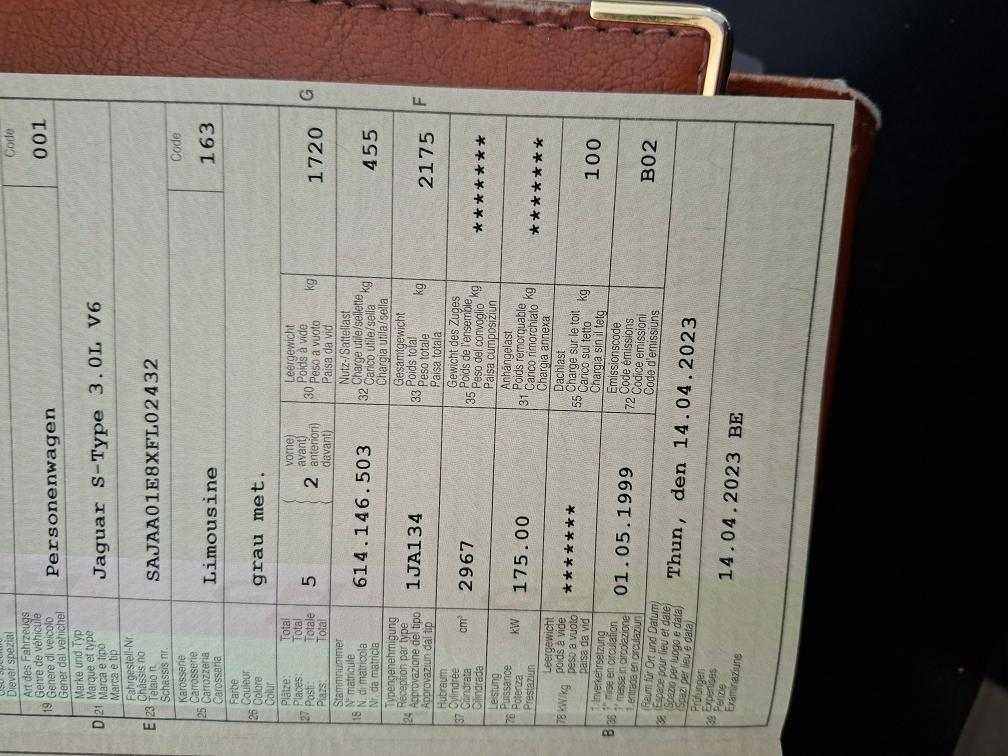 Dever spezial
19 Art des Fahrzeugs
Genre de véhicule
Genere di veicolo
Gener dal vehichel
Personenwagen
Code
001
D 21 Marke und Typ
Marque et type
Marca e tipo
Marca e tip
Jaguar S-Type 3.0L V6
E 23 Fahrgestell-Nr.
Châssis no
Telaio n.
Schassis nr.
SAJAA01E8XFL02432
25 Karosserie
Carrosserie
Carrozzeria
Carossaria
Limousine
Code
163
26 Farbe
Couleur
Colore
Colur
grau met.
27 Plätze: Total
Places: Total
Posti: Totale
Plazs: Total
5
2
vorne)
avant)
anteriori)
davant)
30 Leergewicht
Poids à vide
Peso a vuoto
Paisa da vid
kg
1720
G
18 Stammnummer
N° matricule
N. di matricola
Nr. da matricla
614.146.503
32 Nutz-/Sattellast
Charge utile/sellette
Carico utile/sella
Chargia utila/sella
kg
455
24 Typengenehmigung
Réception par type
Approvazione del tipo
Approvaziun dal tip
1JA134
33 Gesamtgewicht
Poids total
Peso totale
Paisa totala
kg
2175
F
37 Hubraum
Cylindrée
Cilindrata
Cilindrada
cm³
2967
35 Gewicht des Zuges
Poids de l'ensemble
Peso del convoglio
Paisa cumposiziun
kg
********
76 Leistung
Puissance
Potenza
Prestaziun
kW
175.00
31 Anhängelast
Poids remorquable
Carico rimorchiato
Chargia annexa
kg
********
78 kW/kg
Leergewicht
poids à vide
peso a vuoto
paisa da vid
*******
55 Dachlast
Charge sur le toit
Carico sul tetto
Chargia sin il tetg
kg
100
B 36 1. Inverkehrsetzung
1re mise en circulation
1a messa in circolazione
1. entrada en circulaziun
01.05.1999
72 Emissionscode
Code émissions
Codice emissioni
Code d'emissiuns
B02
38 (Raum für Ort und Datum)
(Espace pour lieu et date)
(Spazio per luogo e data)
(Spazi per lieu e data)
Thun, den 14.04.2023
39 Prüfungen
Expertises
Perizie
Examinaziuns
14.04.2023 BE